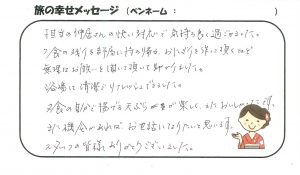 旅の幸せメッセージ (ペンネーム : )
担当の仲居さんの快い対応で気持ち良く過ごせました。
夕食の残りを部屋に持ち帰る おにぎりを作って頂くなど
無理なお願いを聞いて頂いて助かりました。
浴場は清潔でリフレッシュできました。
夕食の自分で揚げる天ぷらが楽しく、またおいしかったです。
また機会があればお世話になりたいと思います。
スタッフの皆様 ありがとうございました。